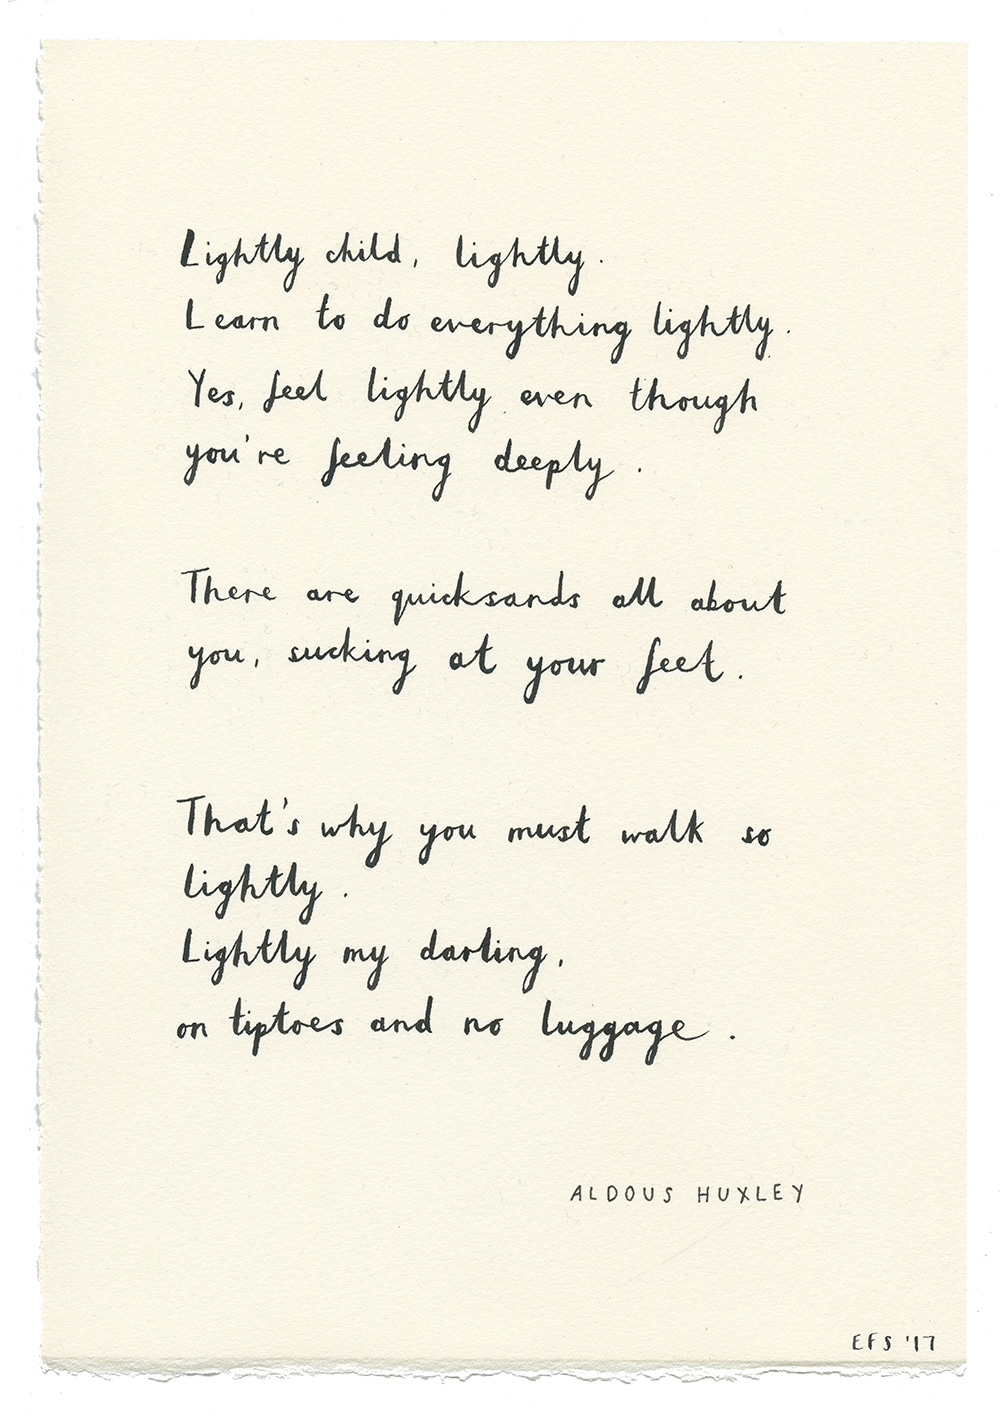 Lightly child, lightly.
Learn to do everything lightly.
Yes, feel lightly even though
you're feeling deeply.
There are quicksands all about
you, sucking at your feet.
That's why you must walk so
lightly.
Lightly my darling,
on tiptoes and no luggage.
ALDOUS HUXLEY
EFS '17